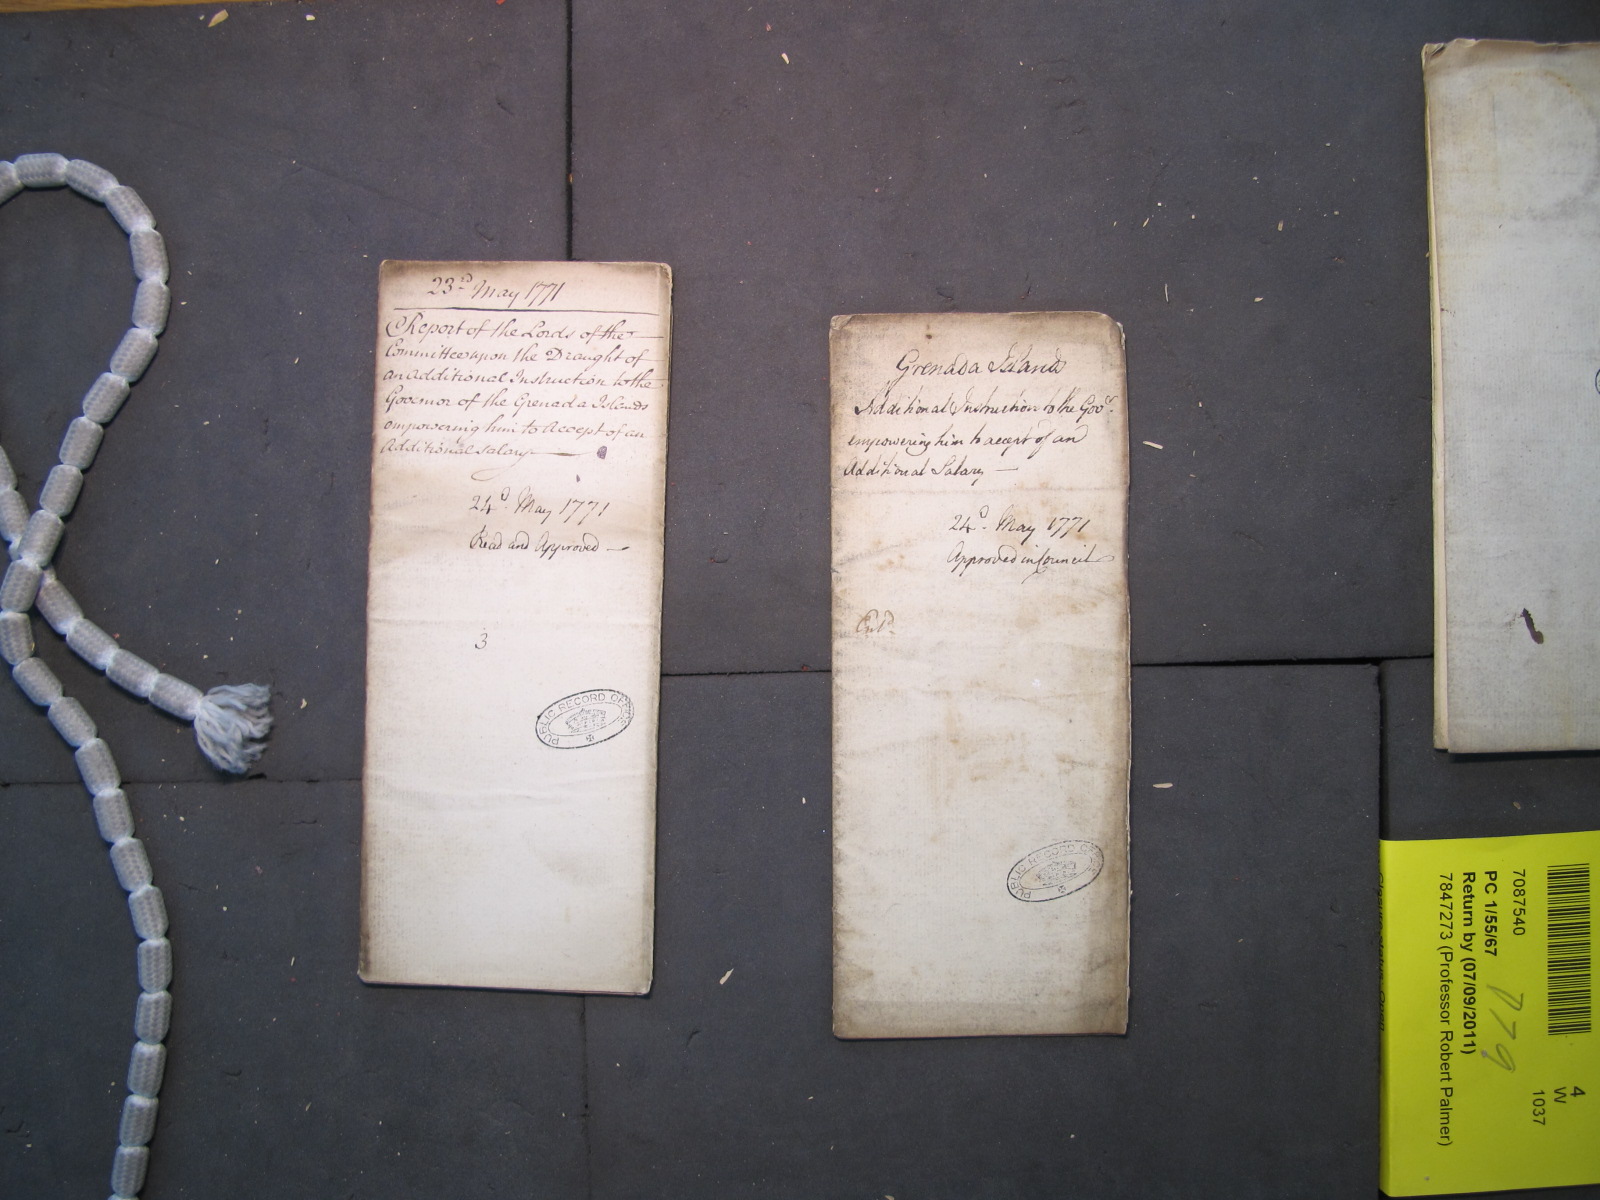 23d May 1771
Report of the Lords of the
Committee upon the Draught of
an Additional Instruction to the
Governor of the Grenada Islands
empowering him to Accept of an
Additional Salary
24d. May 1771
Read and Approved
3
PUBLIC RECORD OFFICE
Grenada Island
Additional Instruction to the Govr.
empowering him to accept of an
Additional Salary
24d. May 1771
Approved in Council
Entd.
PUBLIC RECORD OFFICE
4
W
1037
7087540
PC 1/55/67
779
Return by (07/09/2011)
7847273 (Professor Robert Palmer)